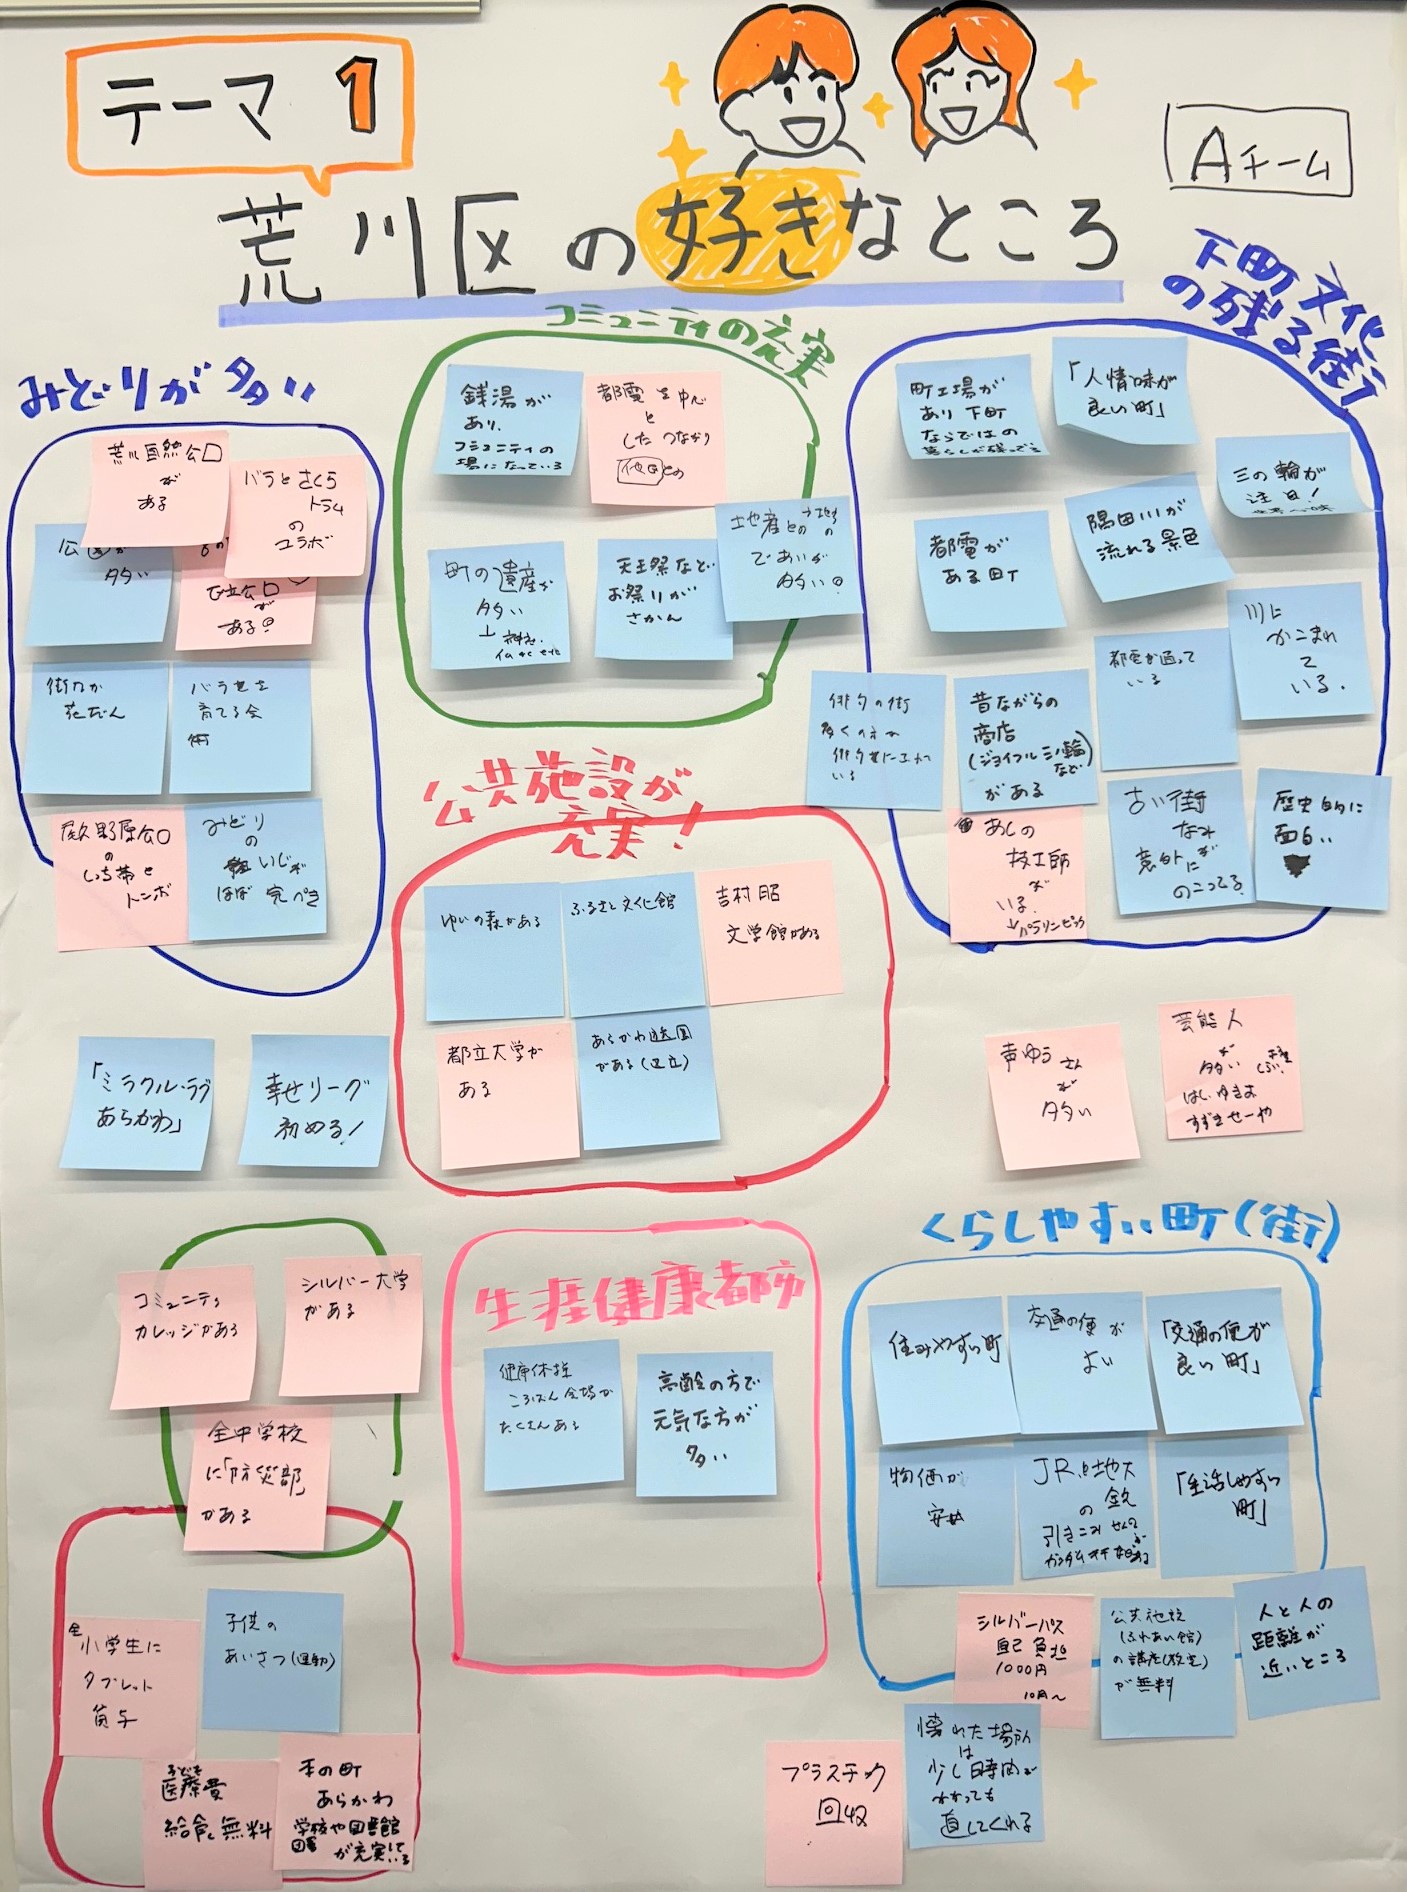 テーマ 1
Aチーム
荒川区の好きなところ
みどりが多い
荒川自然公口
が
ある
バラとさくら
トラム
の
コラボ
公園が
多い
公口
が
ある!
街なか
花だん
バラを
育てる会
みどり
の
いじが
ほぼ完ぺき
尾久の原公口
の
しっち帯と
トンボ
コミュニティの充実
銭湯が
あり、
コミュニティの
場になっている
都電を中心
と
したつながり
他口との
町の遺産が
多い
↓神社.
天王祭など
お祭りが
さかん
であいが
多い!
下町文化
の残る街
町工場が
あり下町
ならではの
暮らしが残ってる
「人情味が
良い町」
三の輪が
注目!
都電が
ある町
隅田川が
流れる景色
川に
かこまれ
て
いる.
都電が通って
いる
俳句の街
多くの方が
いる
昔ながらの
商店
(ジョイフル三ノ輪
など)
がある
あしの
技工師
が
いる.
↓パラリンピック
古い街
なみ
が
意外に
のこってる
歴史的に
面白い
公共施設が
充実!
ゆいの森がある
ふるさと文化館
吉村昭
文学館がある
都立大学が
ある
あらかわ遊園
がある(区立)
「ミラクル・ラブ
あらかわ」
幸せリーグ
初める!
声ゆうさん
が
多い
芸能人
が
多い
すずきせーや
コミュニティ
カレッジがある
シルバー大学
がある
全中学校
に「防災部」
がある
全小学生に
タブレット
貸与
子供の
あいさつ(運動)
子ども
医療費
給食無料
本の町
あらかわ
学校や図書館
図書
が充実している
生涯健康都市
健康体操
ころばん会場が
たくさんある
高齢の方で
元気な方が
多い
くらしやすい町(街)
住みやすい町
交通の便が
よい
「交通の便が
良い町」
物価が
安い
JR、地下
の
引きこみせん
「生活しやすい
町」
シルバーパス
自己負担
1000円
10月〜
公共施設
(ふれあい館)
の講座(教室)
が無料
人と人の
距離が
近いところ
プラスチック
回収
壊れた場所
は
少し時間が
かかっても
直してくれる